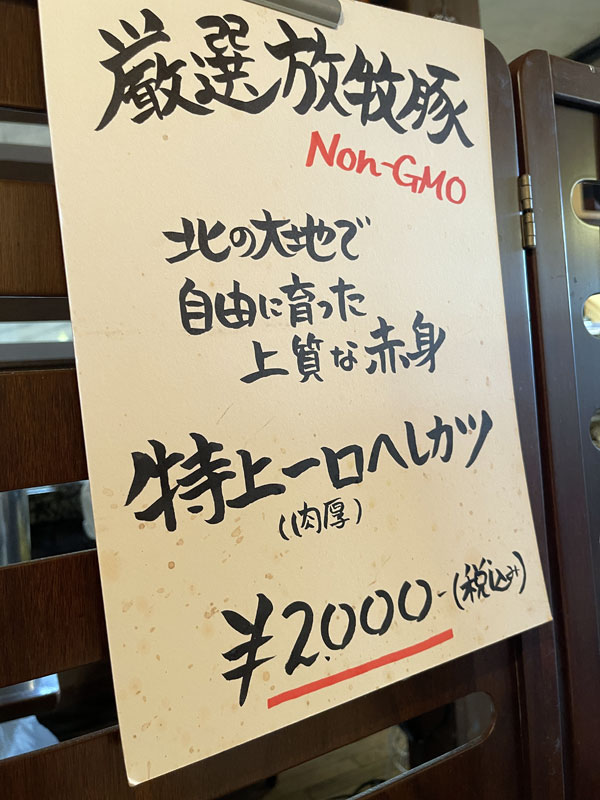 厳選放牧豚
Non-GMO
北の大地で
自由に育った
上質な赤身
特上一口ヘレカツ
(肉厚)
¥2,000-(税込み)